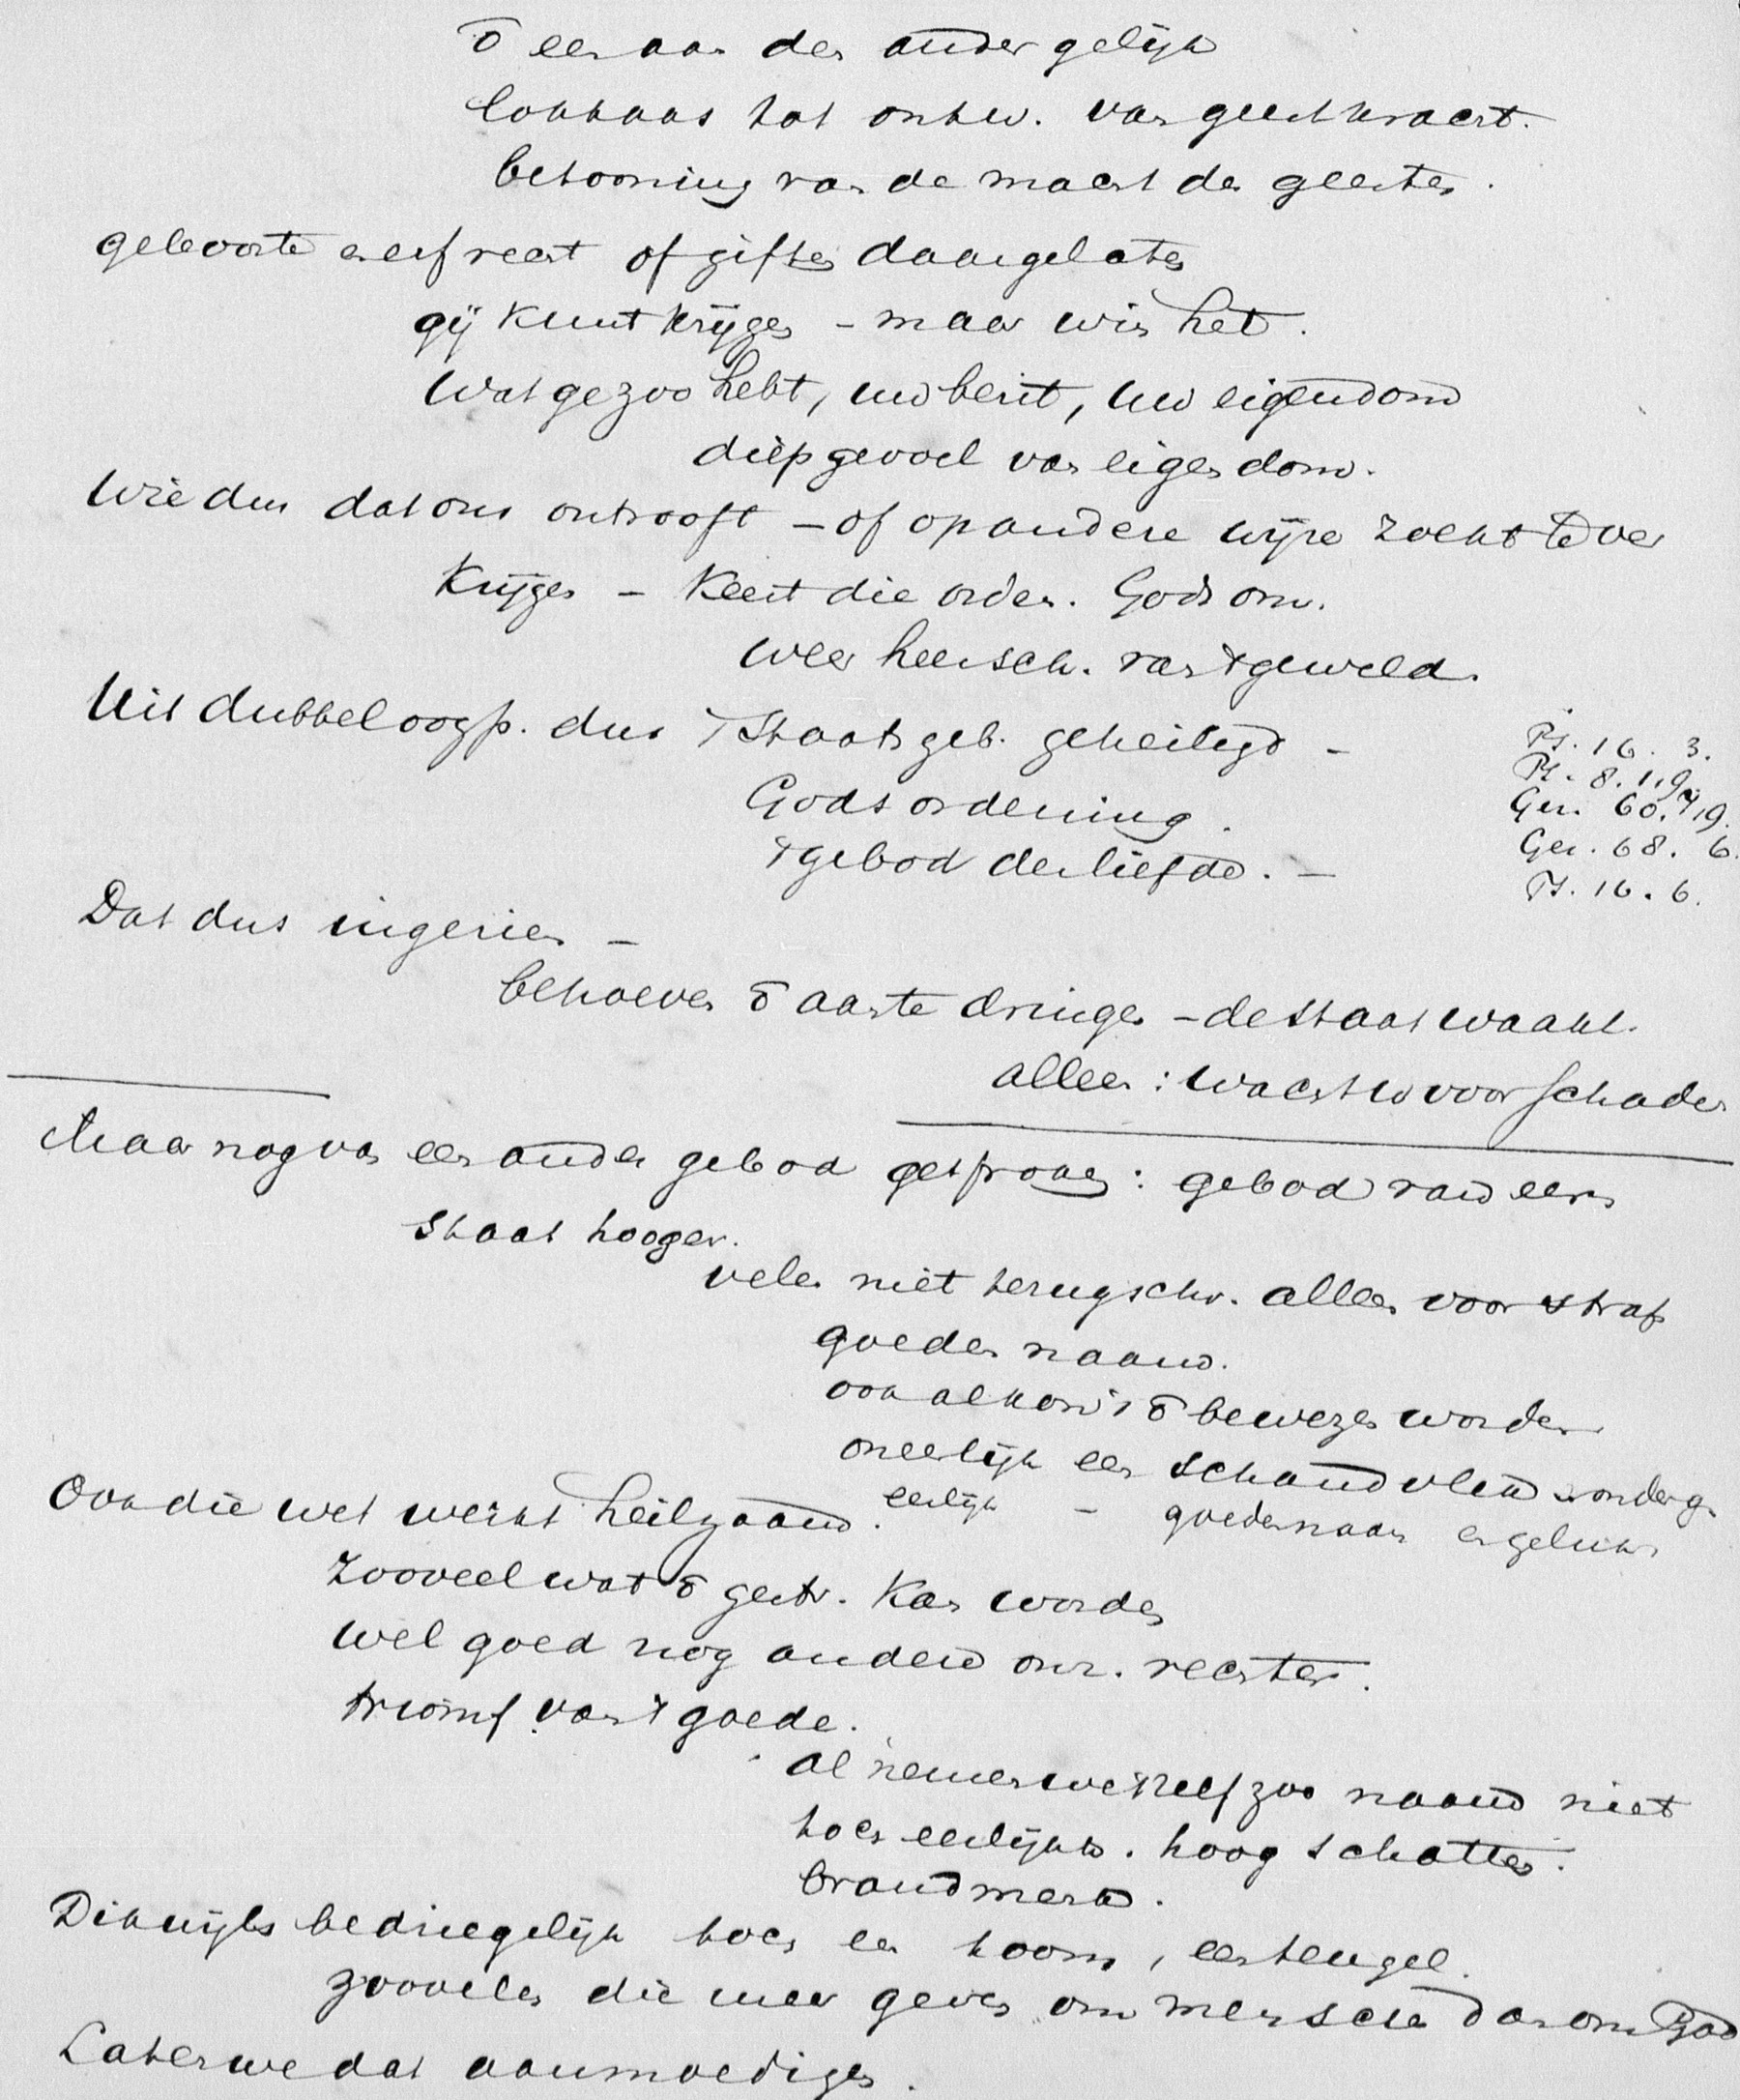 ō een aan den ander gelijk
lokkaas tot ontw. van geestkracht.
betooning van de macht des geestes.
geboorte en erfrecht of giften daargelaten
gij kunt krijgen – maar win het.
Wat ge zoo hebt, uw bezit, uw eigendom
diep gevoel van eigendom.
Wie dus dat ons ontrooft – of op andere wijze zoekt te ver
krijgen – keert die orden. Gods om.
weer heersch. van 't geweld.
Uit dubbel oogp. dus 't Staatsgeb. geheiligd – Ps. 16. 3.
Gods ordening. Ps. 8. 1, 9.
Gez. 60. 7, 9.
't gebod der liefde. – Gez. 68. 6.
Ps. 16. 6.
Dat dus ingezien –
behoeven ō aan te dringen – de Staat waakt.
alleen: wacht u voor schaden
Maar nog van een ander gebod gesproken: gebod van d eer
staat hooger.
velen niet terugschr. alleen voor straf
goeden naam.
ook al kon 't ō bewezen worden
oneerlijk een schandvlek zonderg.
eerlijk – goeden naam en geluk
Ook die wet werkt heilzaam.
Zooveel wat ō gestr. kan worden
wel goed nog andere onz. rechter.
triomf van 't goede.
al nemen we 't zelf zoo naauw niet
toch eerlijkh. hoog schatten.
brandmerk.
Dikwijls bedriegelijk toch een toom, een teugel.
zoovelen die meer geven om menschen dan om God
Laten we dat aanmoedigen.